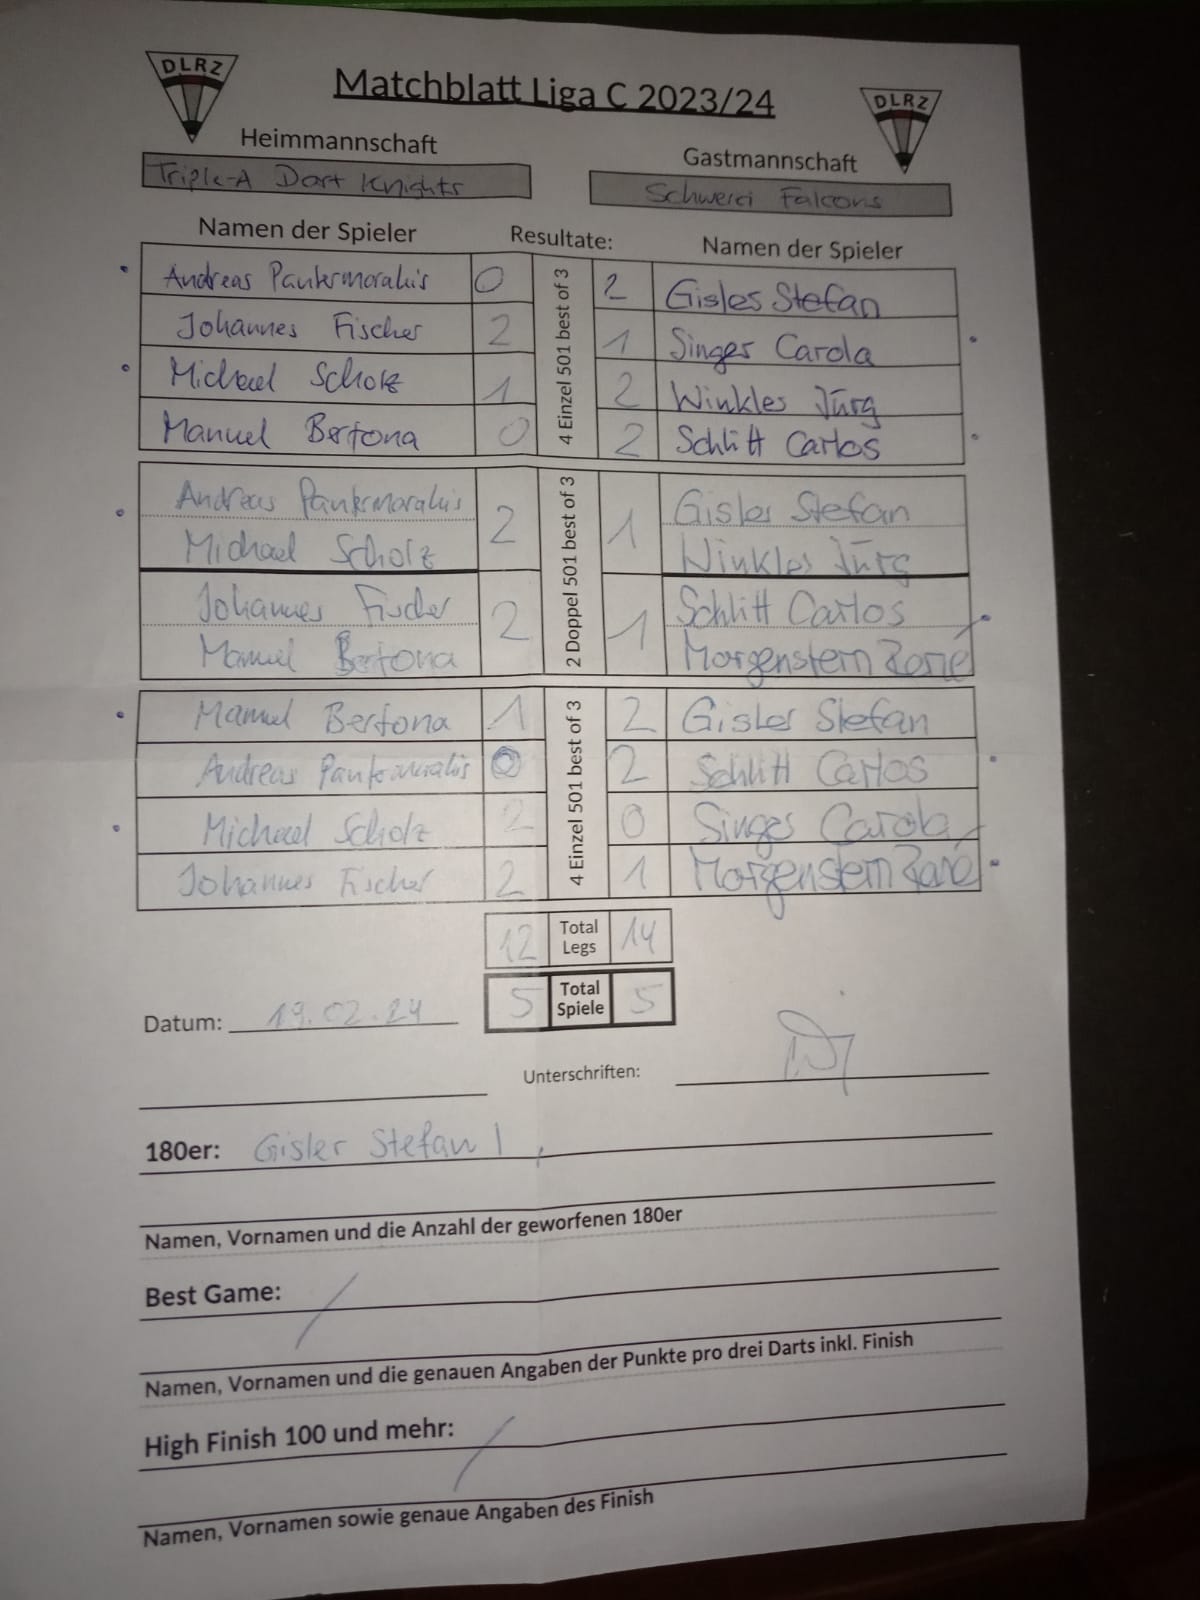 DLRZ
Matchblatt Liga C 2023/24
DLRZ
Heimmannschaft
Gastmannschaft
Triple-A Dart Knights
Schwerci Falcons
Namen der Spieler
Resultate:
Namen der Spieler
Andreas Pantermorakis 0 2 Gisler Stefan
Johannes Fischer 2 1 Singer Carola
4 Einzel 501 best of 3
Michael Scholz 1 2 Winkler Jürg
Manuel Bertona 0 2 Schlitt Carlos
Andreas Pantermorakis Gisler Stefan
2 1
Michael Scholz Winkler Jürg
2 Doppel 501 best of 3
Johannes Fischer Schlitt Carlos
2 1
Manuel Bertona Morgenstern René
Manuel Bertona 1 2 Gisler Stefan
Andreas Pantermorakis 0 2 Schlitt Carlos
4 Einzel 501 best of 3
Michael Scholz 2 0 Singer Carola
Johannes Fischer 2 1 Morgenstern René
12 Total Legs 14
5 Total Spiele 5
Datum: 19.02.24
Unterschriften:
180er: Gisler Stefan 1
Namen, Vornamen und die Anzahl der geworfenen 180er
Best Game: /
Namen, Vornamen und die genauen Angaben der Punkte pro drei Darts inkl. Finish
High Finish 100 und mehr: /
Namen, Vornamen sowie genaue Angaben des Finish